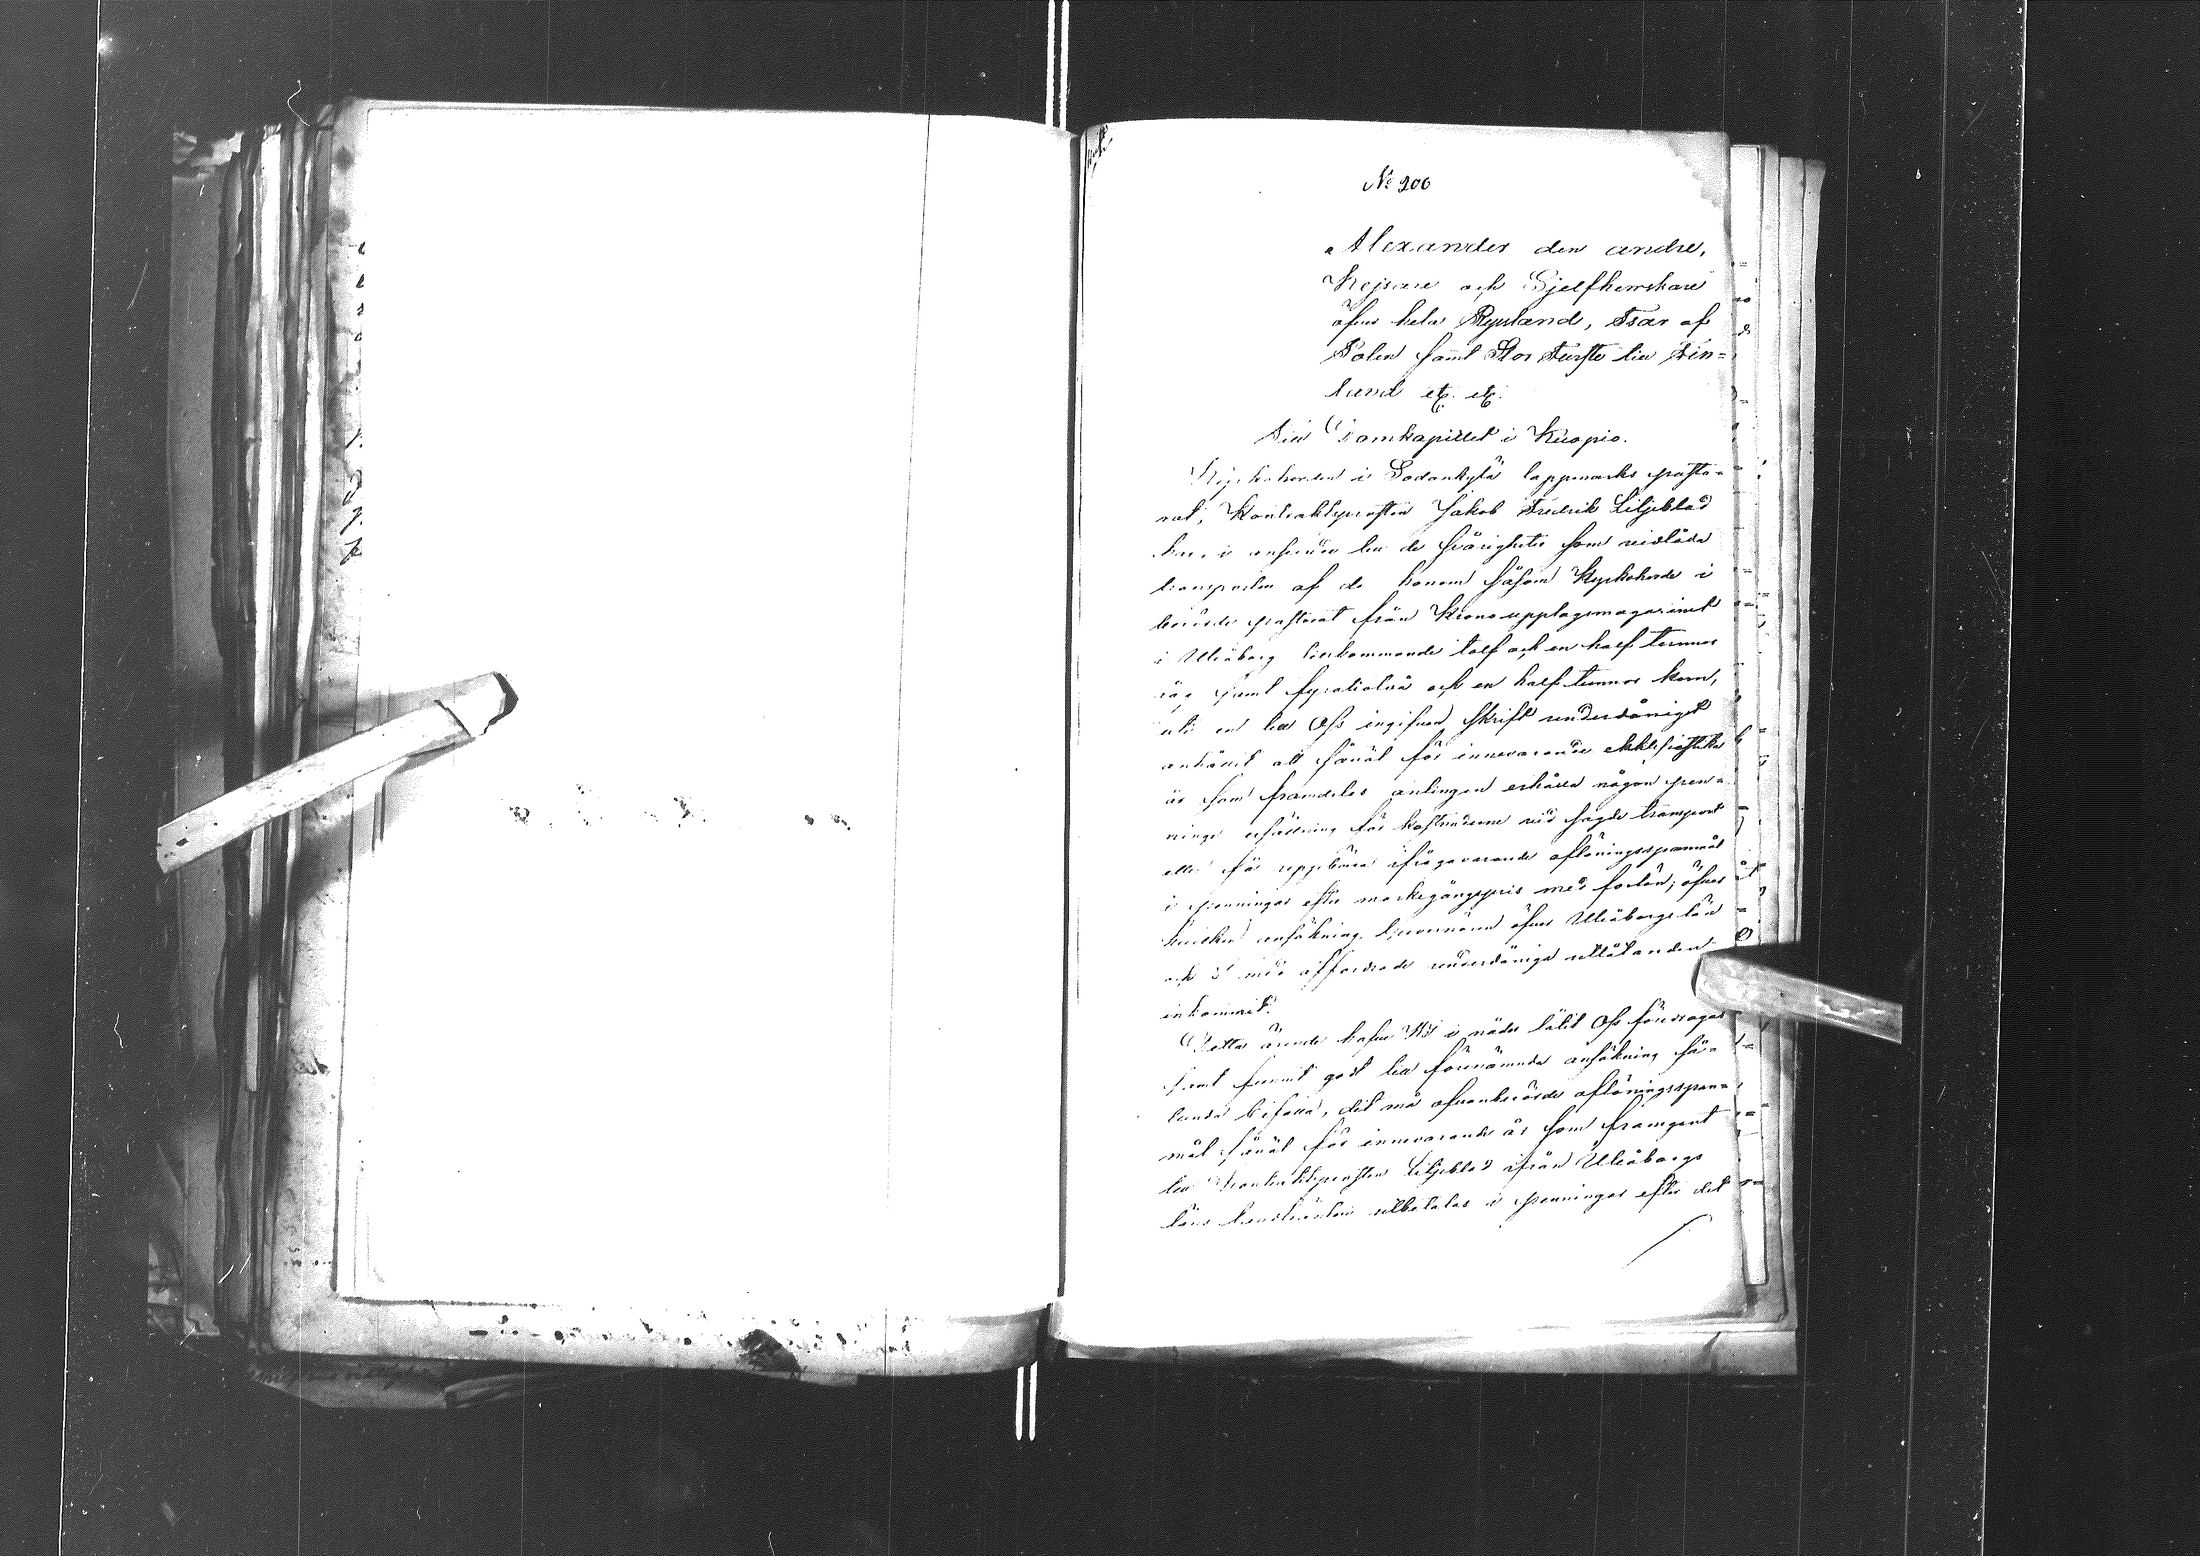 № 206
Alexander den andre,
Kejsare och Sjelfherrskare
öfver hela Ryssland, Tsar af
Polen samt Stor Furste till Fin-
land etc. etc.
Till Domkapitlet i Kuopio.
Kyrkoherden i Sodankylä lappmarks pasto-
rat, Kontraktsprosten Jakob Fredrik Liljeblad
har, i anseende till de svårigheter som vidlåda
transporten af de honom såsom Kyrkoherde i
berörde pastorat från Krono upplagsmagasinet
i Uleåborg tillkommande tolf och en half tunnor
råg samt fyratiotvå och en half tunnor korn,
uti en till Oss ingifven skrift underdånigst
anhållit att såväl för innevarande ekklesiastik
år som framdeles antingen erhålla någon pen-
ninge ersättning för kostnaderne vid sagde transport
eller få uppbära ifrågavarande aflöningsspanmål
i penningar efter markegångspris med forlön; öfver
hvilken ansökning Guvernören öfver Uleåborgs län
och I med affordrade underdåniga utlåtanden
inkommit.
Detta ärende hafve Wi i nåder låtit Oss föredragas
samt funnit godt till förenämnda ansökning så-
lunda bifalla, det må ofvanberörde aflöningsspan-
mål såväl för innevarande år som framgent
till Kontraktsprosten Liljeblad ifrån Uleåborgs
läns landtränteri utbetalas i penningar efter det